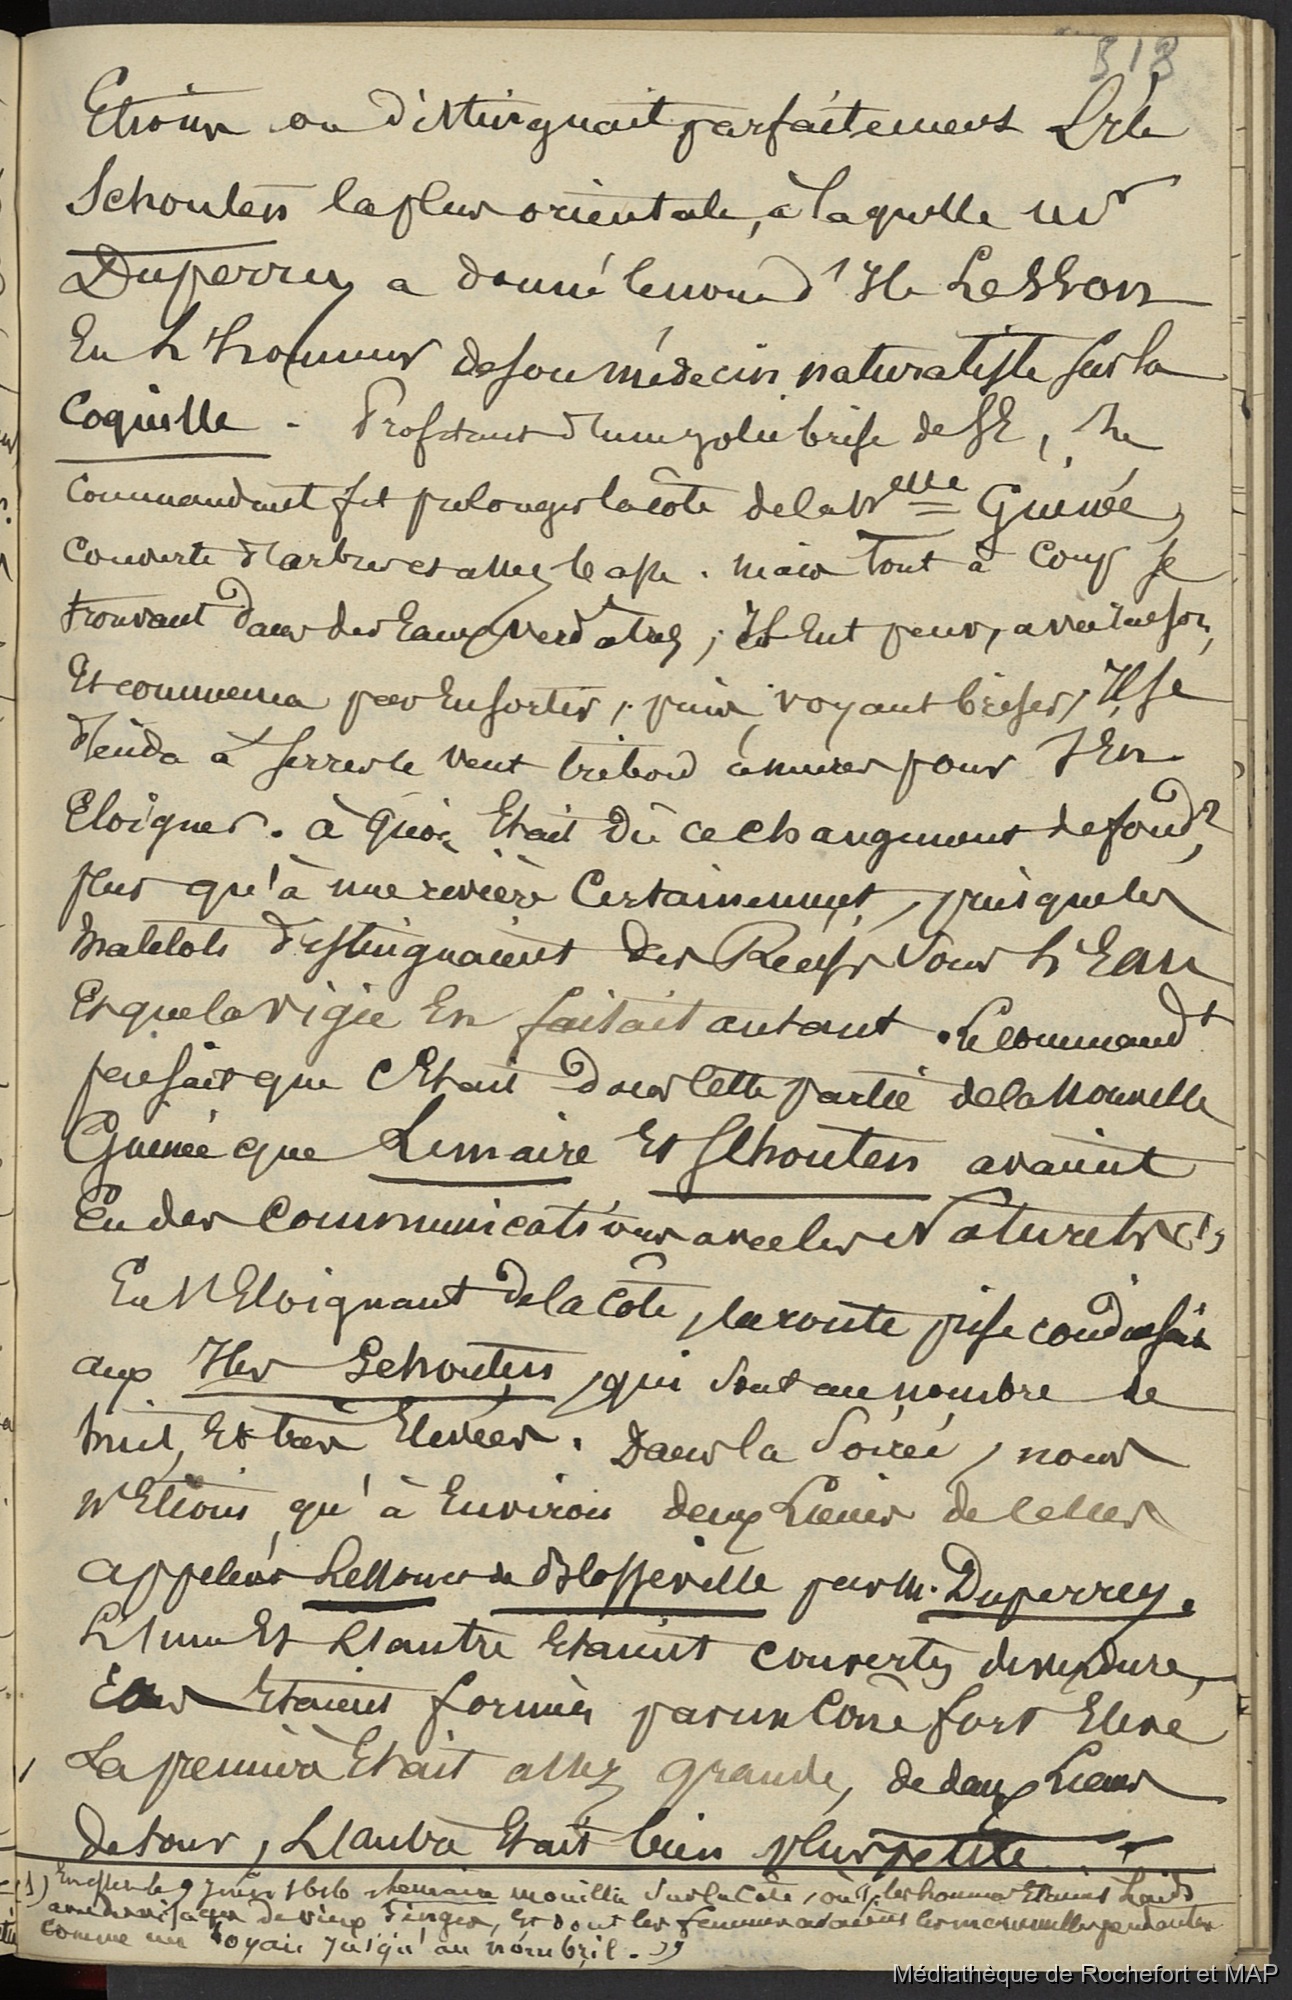 318
Etions on distinguait parfaitement L'île
Schouten la plus orientale, à laquelle mr
Duperrey a donné le nom d'Ile Lesson
En L'honneur de son médecin naturaliste sur la
Coquille. Profitant d'une jolie brise de SE, Le
Commandant fit prolonger la côte de la Nelle Guinée,
Couverte d'arbres et assez basse. mais tout à coup se
trouvant dans des Eaux verdâtres, Il Eut peur, avec raison,
Et commença par En sortir, puis, voyant briser, Il se
décida à serrer le vent tribord amures pour s'En
Eloigner. à quoi Etait dû ce changement de fond?
plus qu'à une rivière Certainement, puisque les
matelots distinguaient des Récifs sous L'Eau
Et que la vigie En faisait autant. Le commandt
pensait que C'Etait dans cette partie de la Nouvelle
Guinée que Lemaire Et Schouten avaient
Eu des communications avec les Naturels (1)
En s'Eloignant de la côte, la route prise conduisait
aux Iles Schouten, qui sont au nombre de
huit, Et très Elevées. Dans la soirée, nous
n'Etions qu'à Environ deux Lieues de celles
appelées Lesson et de Blosseville par M. Duperrey.
L'une Et L'autre Etaient couvertes de verdure,
Etaient formées par un Cône fort Elevé
La première Etait assez grande, de deux Lieues
de tour, L'autre Etait bien plus petite.
(1) En effet le 9 1616 Lemaire mouilla sur la Côte, où les hommes Etaient Laids
avec des visages de vieux singes, Et dont les femmes avaient les mamelles pendantes
comme un jusqu'au nombril. "
Médiathèque de Rochefort et MAP